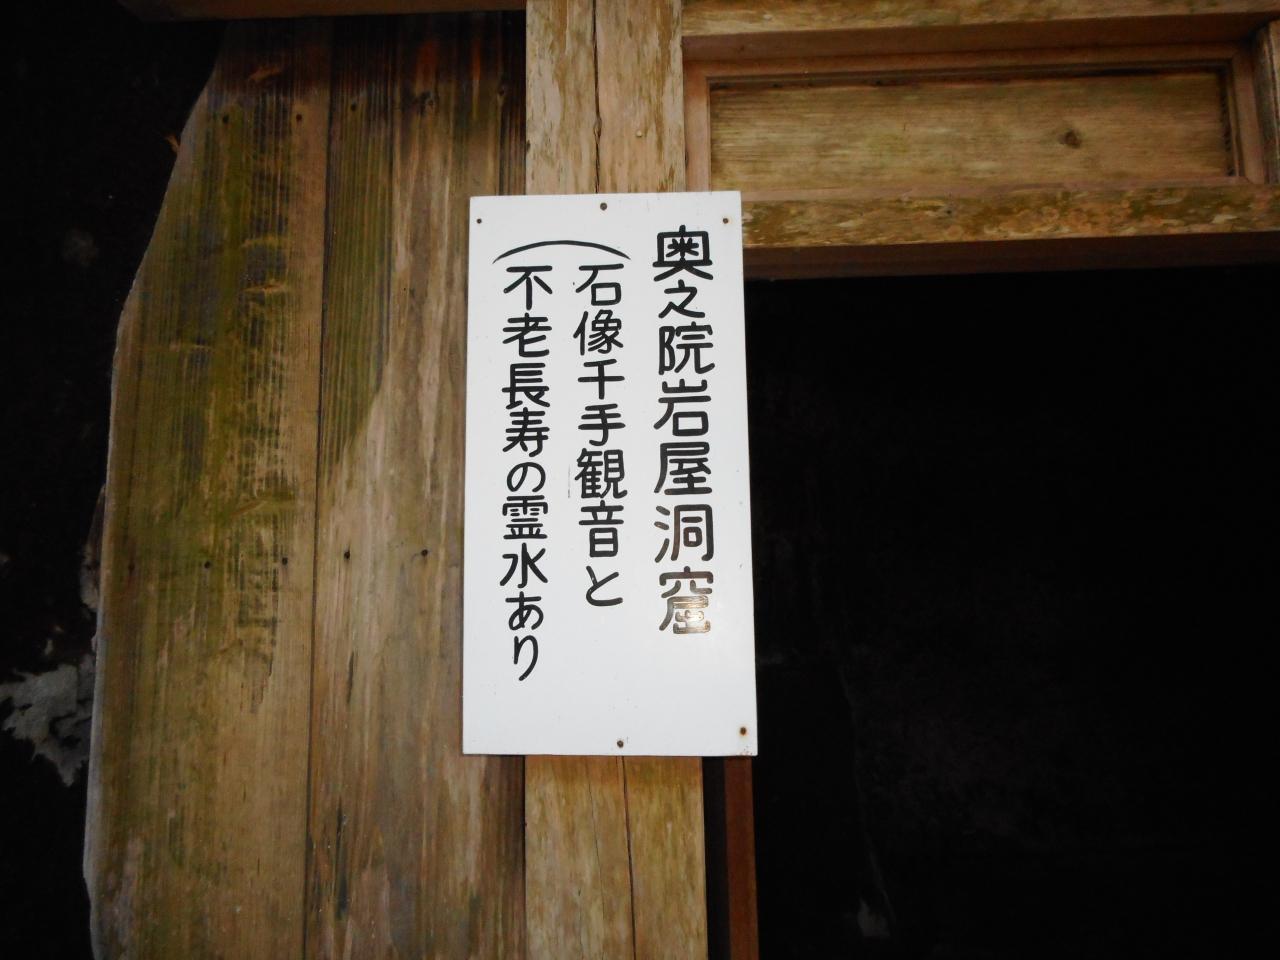 奥之院岩屋洞窟
(石像千手観音と
不老長寿の霊水あり